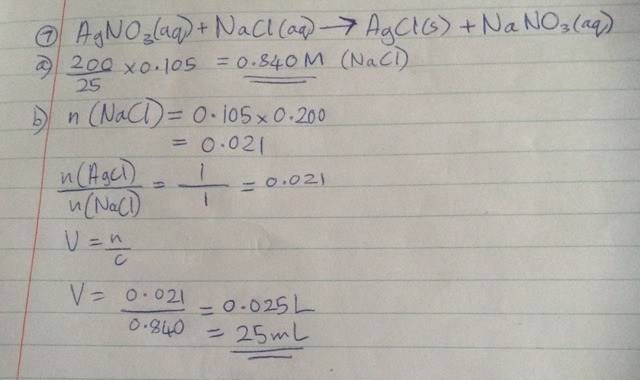 ⑦ AgNO₃(aq) + NaCl(aq) → AgCl(s) + NaNO₃(aq)
a) 200/25 × 0.105 = 0.840M (NaCl)
b) n(NaCl) = 0.105 × 0.200
= 0.021
n(AgCl)/n(NaCl) = 1/1 = 0.021
V = n/c
V = 0.021/0.840 = 0.025L
= 25mL